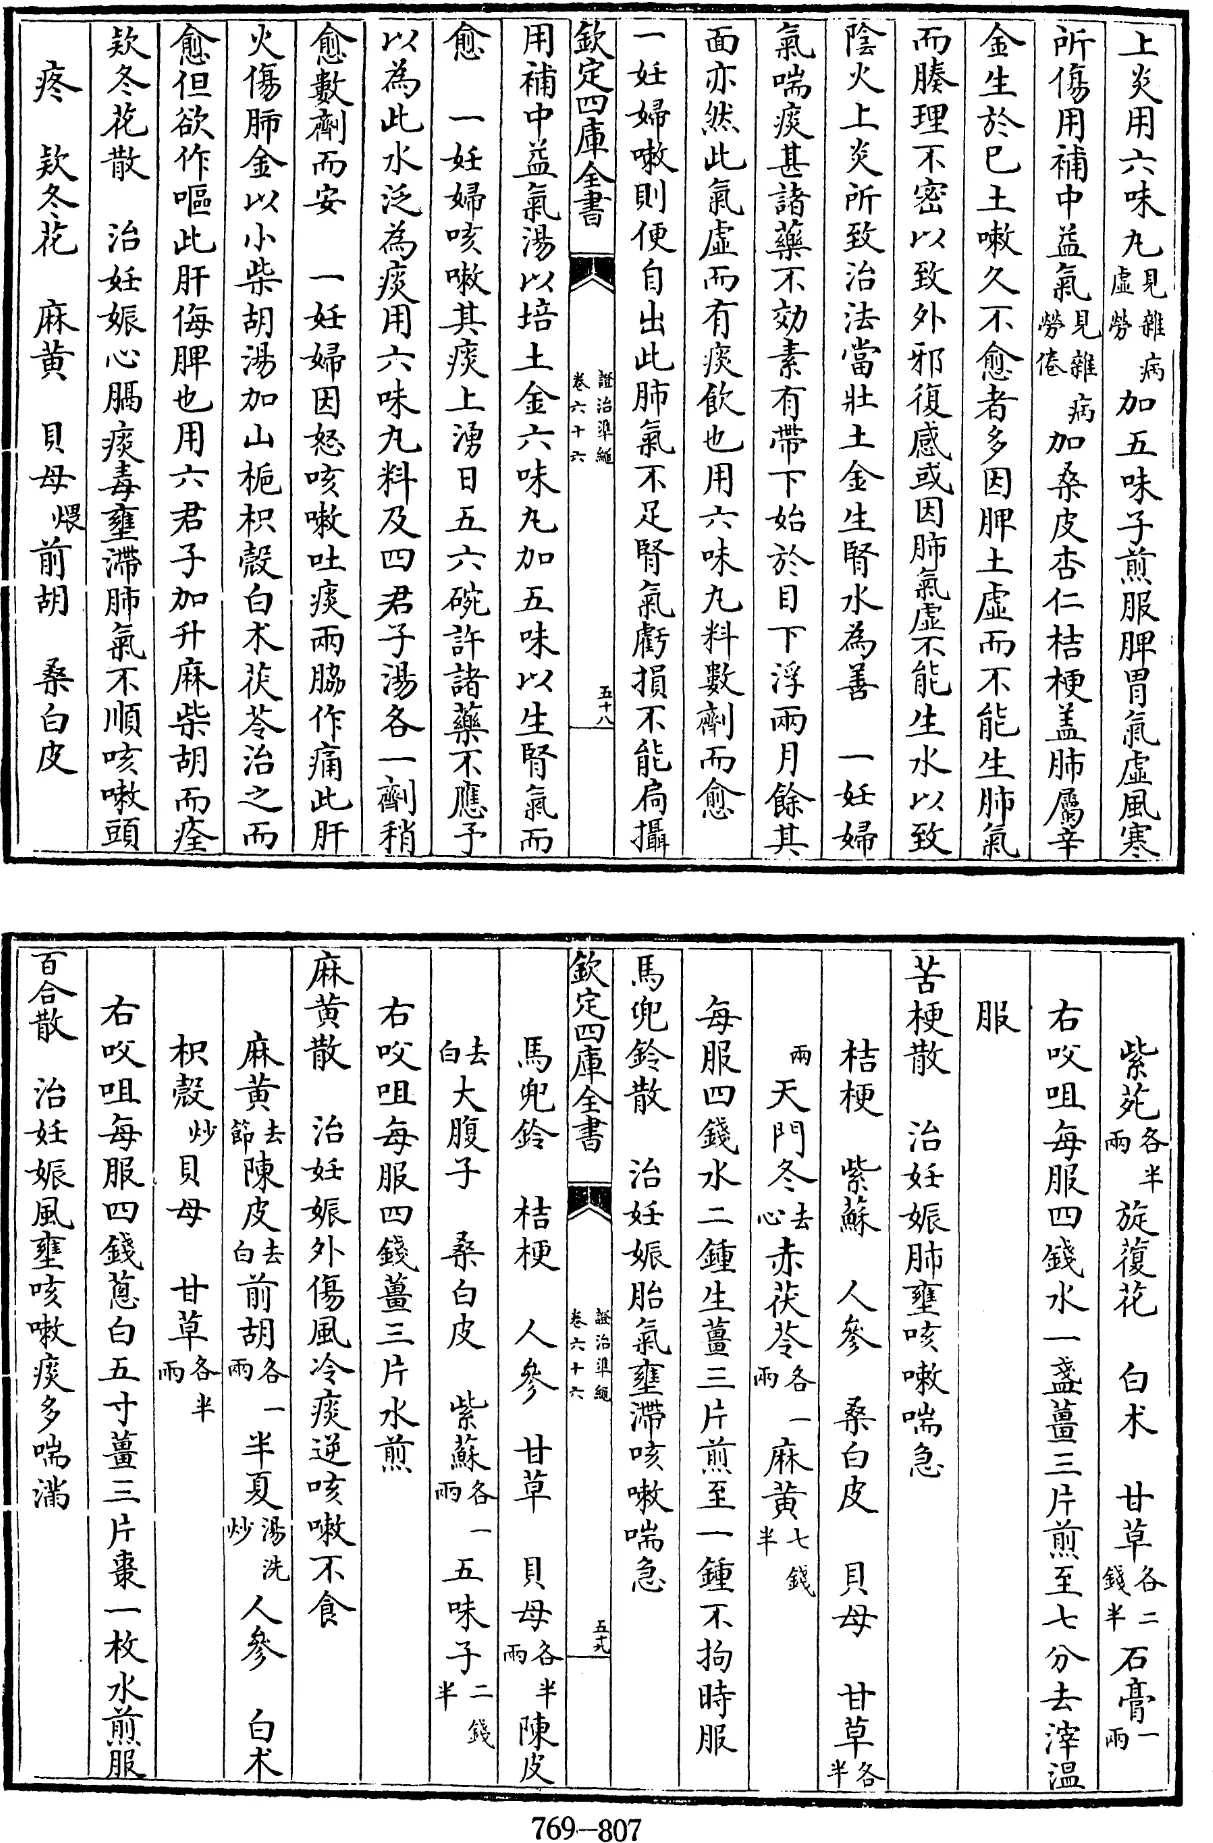 上炎用六味丸見雜病虛勞加五味子煎服脾胃氣虛風寒
所傷用補中益氣見雜病勞倦加桑皮杏仁桔梗盖肺屬辛
金生於巳土嗽久不愈者多因脾土虛而不能生肺氣
而腠理不密以致外邪復感或因肺氣虛不能生水以致
陰火上炎所致治法當壯土金生腎水為善　一妊婦
氣喘痰甚諸藥不効素有帶下始於目下浮兩月餘其
面亦然此氣虛而有痰飲也用六味丸料數劑而愈
一妊婦嗽則便自出此肺氣不足腎氣虧損不能扄攝
欽定四庫全書　證治準繩卷六十六　五十八
用補中益氣湯以培土金六味丸加五味以生腎氣而
愈　一妊婦咳嗽其痰上湧日五六碗許諸藥不應予
以為此水泛為痰用六味丸料及四君子湯各一劑稍
愈數劑而安　一妊婦因怒咳嗽吐痰兩脇作痛此肝
火傷肺金以小柴胡湯加山梔枳殻白术茯苓治之而
愈但欲作嘔此肝侮脾也用六君子加升麻柴胡而痊
欵冬花散　治妊娠心膈痰毒壅滯肺氣不順咳嗽頭
疼　欵冬花　麻黃　貝母煨前胡　桑白皮
紫菀各半兩　旋復花　白术　甘草各二錢半石膏一兩
右㕮咀每服四錢水一盞薑三片煎至七分去滓温
服
苦梗散　治妊娠肺壅咳嗽喘急
桔梗　紫蘇　人參　桑白皮　貝母　甘草各半
兩天門冬去心赤茯苓各一兩麻黃七錢半
每服四錢水二鍾生薑三片煎至一鍾不拘時服
馬兜鈴散　治妊娠胎氣壅滯咳嗽喘急
欽定四庫全書　證治準繩卷六十六　五十九
馬兜鈴　桔梗　人參　甘草　貝母各半兩陳皮
去白大腹子　桑白皮　紫蘇各一兩五味子二錢半
右㕮咀每服四錢薑三片水煎
麻黃散　治妊娠外傷風冷痰逆咳嗽不食
麻黃去節陳皮去白前胡各一兩半夏湯洗炒人參　白术
枳殻炒貝母　甘草各半兩
右㕮咀每服四錢蔥白五寸薑三片棗一枚水煎服
百合散　治妊娠風壅咳嗽痰多喘滿
769—807